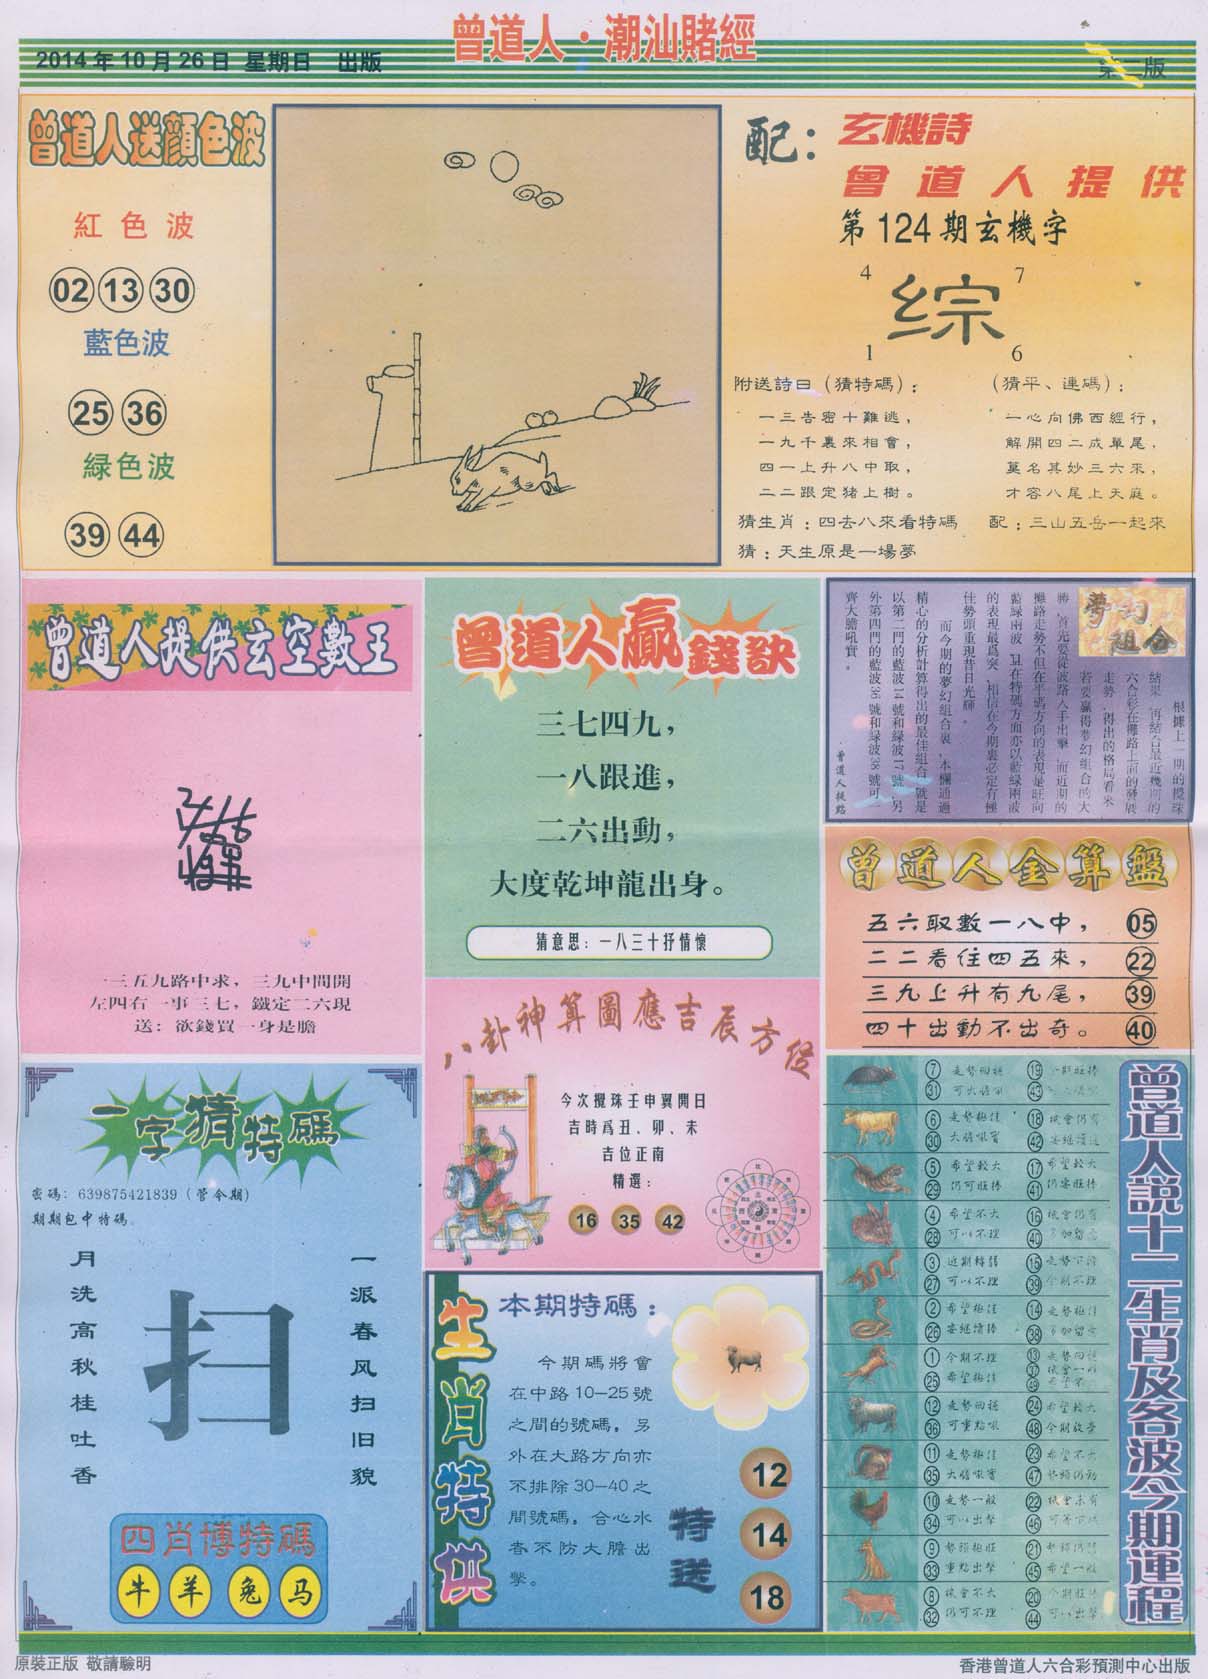 曾道人·潮汕賭經
2014年10月26日 星期日 出版
第二版
曾道人送顏色波
紅色波
02 13 30
藍色波
25 36
緑色波
39 44
配:
玄機詩
曾道人提供
第124期玄機字
4 7
综
1 6
附送詩曰(猜特碼):
一三告密十難逃,
一九千裏來相會,
四一上升八中取,
二二跟定猪上樹。
(猜平、連碼):
一心向佛西經行,
解開四二成單尾,
莫名其妙三六來,
才容八尾上天庭。
猜生肖:四去八來看特碼
配:三山五岳一起來
猜:天生原是一場夢
曾道人提供玄空數王
一三五九路中求,三九中間開
左四右一事三七,鐵定二六現
送:欲錢買一身是膽
曾道人贏錢訣
三七四九,
一八跟進,
二六出動,
大度乾坤龍出身。
猜意思:一八三十抒情懷
夢幻組合
根據上一期的攪珠
結果,再結合最近幾期的
六合彩在攤路上前的發展
走勢,得出的格局看來
若要贏得夢幻組合的大
勝,首先要從波路入手出擊,而近期的
攤路走勢不但在平碼方向的表現是旺向
藍緑兩波,且在特碼方面亦以藍緑兩波
的表現最爲突,相信在今期裏必定有極
佳勢頭重現昔日光輝。
而今期的夢幻組合裏,本欄通過
精心的分析計算得出的最佳組合號是
以第二門的藍波14號和緑波17號,另
外第四門的藍波36號和緑波38號可一
齊大膽吼實。
曾道人提路
曾道人金算盤
五六取數一八中, 05
二二看住四五來, 22
三九上升有九尾, 39
四十出動不出奇。 40
八卦神算圖應吉辰方位
今次攪珠壬申翼開日
吉時爲丑、卯、未
吉位正南
精選:
16 35 42
一字猜特碼
密碼:639875421839(管令期)
期期包中特碼
月洗高秋桂吐香
扫
一派春风扫旧貌
四肖博特碼
牛 羊 兔 马
生肖特供
本期特碼:
今期碼將會
在中路10-25號
之間的號碼,另
外在大路方向亦
不排除30-40之
間號碼,合心水
者不防大膽出
擊。
特送
12
14
18
曾道人說十二生肖及各波今期運程
7 走勢回穩 19 今期旺棒
31 可出幾刷 43
6 走勢極佳 18 機會仍有
30 大膽吼實 42 安繼讀追
5 希望較大 17 希望較大
29 仍可旺棒 41 仍安旺棒
4 希望不大 16 機會仍有
28 可以不理 40 多加留意
3 近期轉弱 15 走勢下滑
27 可以不理 39 今期不理
2 希望極佳 14 走勢極佳
26 安繼讀捧 38 多加留意
1 今期不理 13 走勢回穩
37 機會一般
25 希望極佳 49 希望不
12 走勢回穩 24 希望較大
36 可重點吼 48 今期放旁
11 走勢極佳 23 希望不大
35 大膽吼實 47
10 走勢一般 22 機會未有
34 可以出擊 46
9 勢頭極旺 21
33 重點出擊 45 希望一般
8 機會不大 20 今期旺棒
32 仍可不理 44 可以出擊
原裝正版 敬請驗明
香港曾道人六合彩預測中心出版